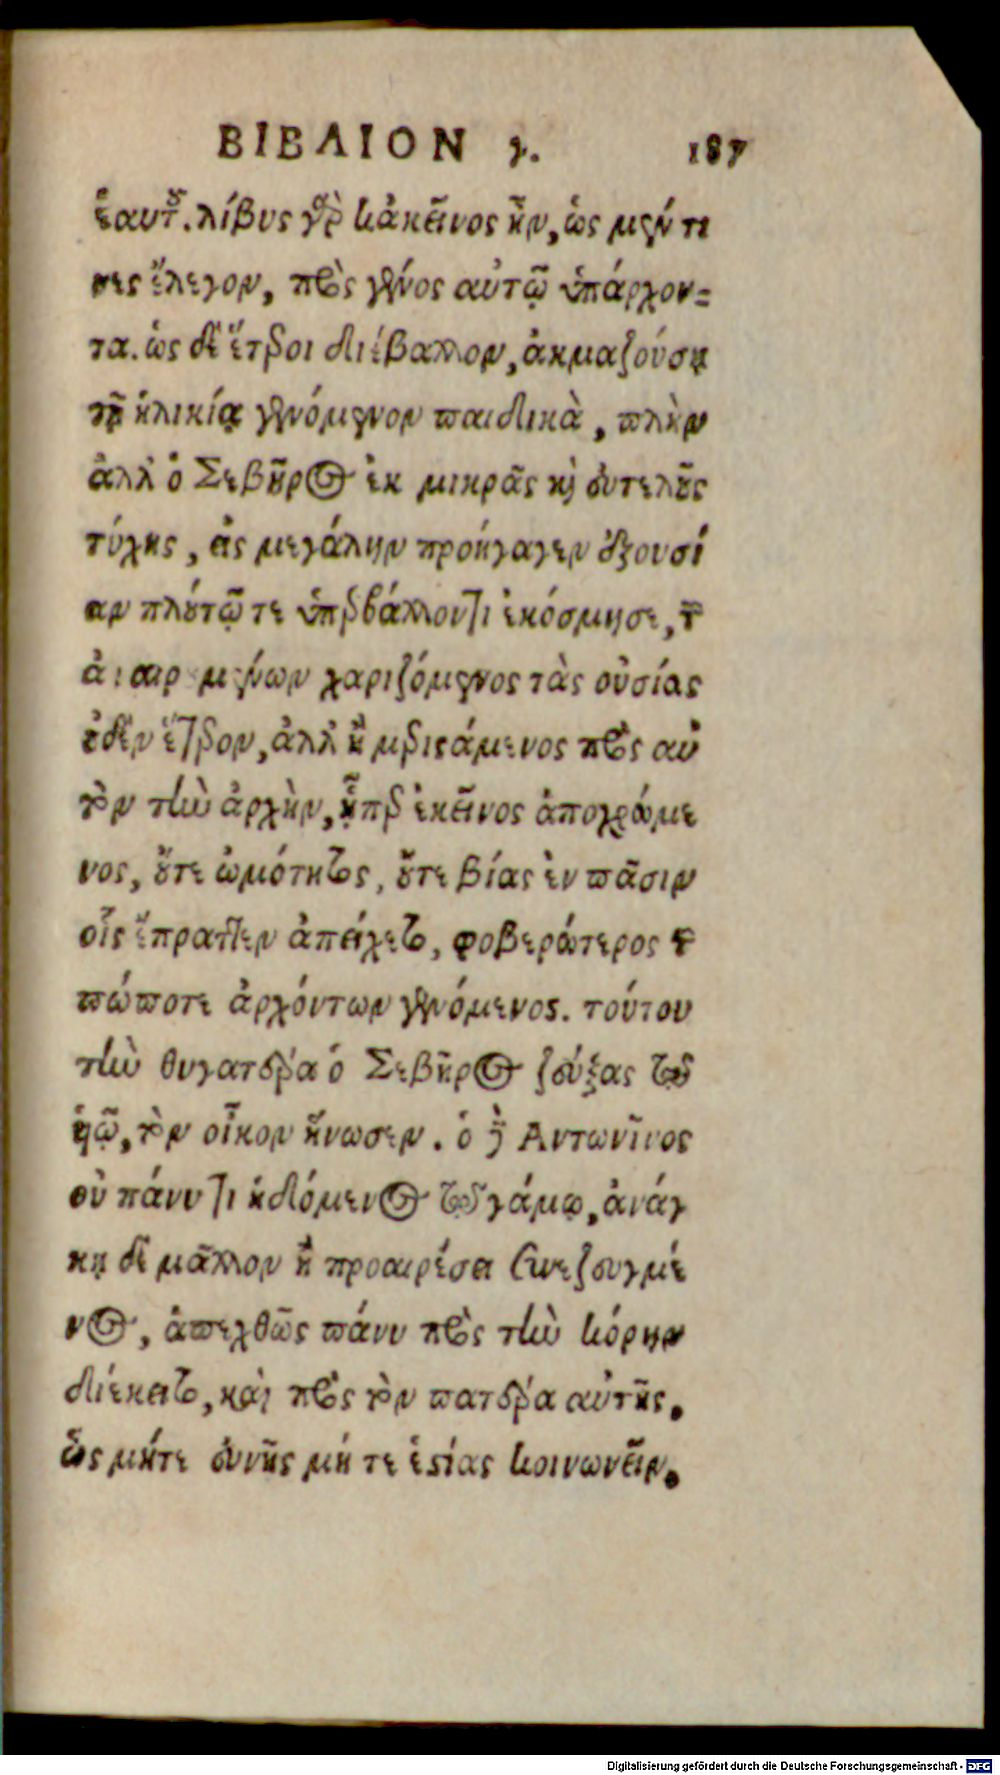 ΒΙΒΛΙΟΝ γ. 187
ἑαυτοῦ. λίβυς γὰρ κἀκεῖνος ἦν, ὡς μέν τι
νες ἔλεγον, πρὸς γένος αὐτῷ ὑπάρχον=
τα. ὡς δὲ ἕτεροι διέβαλλον, ἀκμαζούσῃ
τῇ ἡλικίᾳ γενόμενον παιδικὰ, πλὴν
ἀλλ' ὁ Σεβῆρος ἐκ μικρᾶς καὶ εὐτελοῦς
τύχης, εἰς μεγάλην προήγαγεν ἐξουσί
αν πλούτῳ τε ὑπερβάλλοντι ἐκόσμησε, τῶν
χαριζόμενος τὰς οὐσίας
οὐδὲν ἕτερον, ἀλλ' ἢ μερισάμενος πρὸς αὐ
τὸν τὴν ἀρχὴν, ᾗπερ ἐκεῖνος ἀποχρώμε
νος, οὔτε ὠμότητος, οὔτε βίας ἐν πᾶσιν
οἷς ἔπραττεν ἀπείχετο, φοβερώτερος τῶν
πώποτε ἀρχόντων γενόμενος. τούτου
τὴν θυγατέρα ὁ Σεβῆρος ζεύξας τῷ
ἡῷ, τὸν οἶκον ἥνωσεν. ὁ δὲ Ἀντωνῖνος
οὐ πάνυ τι ἡδόμενος τῷ γάμῳ, ἀνάγ
κῃ δὲ μᾶλλον ἢ προαιρέσει συνεζευγμέ
νος, ἀπεχθῶς πάνυ πρὸς τὴν κόρην
διέκειτο, καὶ πρὸς τὸν πατέρα αὐτῆς.
ὡς μήτε εὐνῆς μή τε ἑστίας κοινωνεῖν.
Digitalisierung gefördert durch die Deutsche Forschungsgemeinschaft - DFG